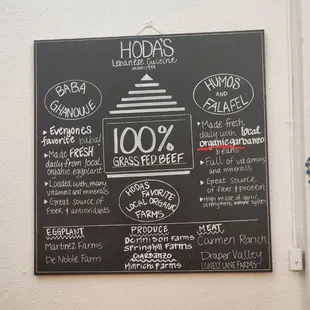 HODA'S
Lebanese Cuisine
BABA
GHANOUJE
HUMOS AND
FALAFEL
* Everyones
favorite baba!
* Made FRESH
daily from local
organic eggplant
* Loaded with many
vitamins and minerals
* Great source of
fiber & antioxidants
100%
GRASS FED BEEF
* Made fresh
daily with local
organic garbanzo
beans
* Full of vitamins
and minerals
* Great source
of fiber & protein
* High in
immune system
HODAS
FAVORITE
LOCAL ORGANIC
FARMS
EGGPLANT
Martinez Farms
De Noble Farm
PRODUCE
Dennison Farms
Springhill Farms
GARBANZO
Hinrichs Farms
MEAT
Carmen Ranch
Draper Valley
LONELY LANE FARMS